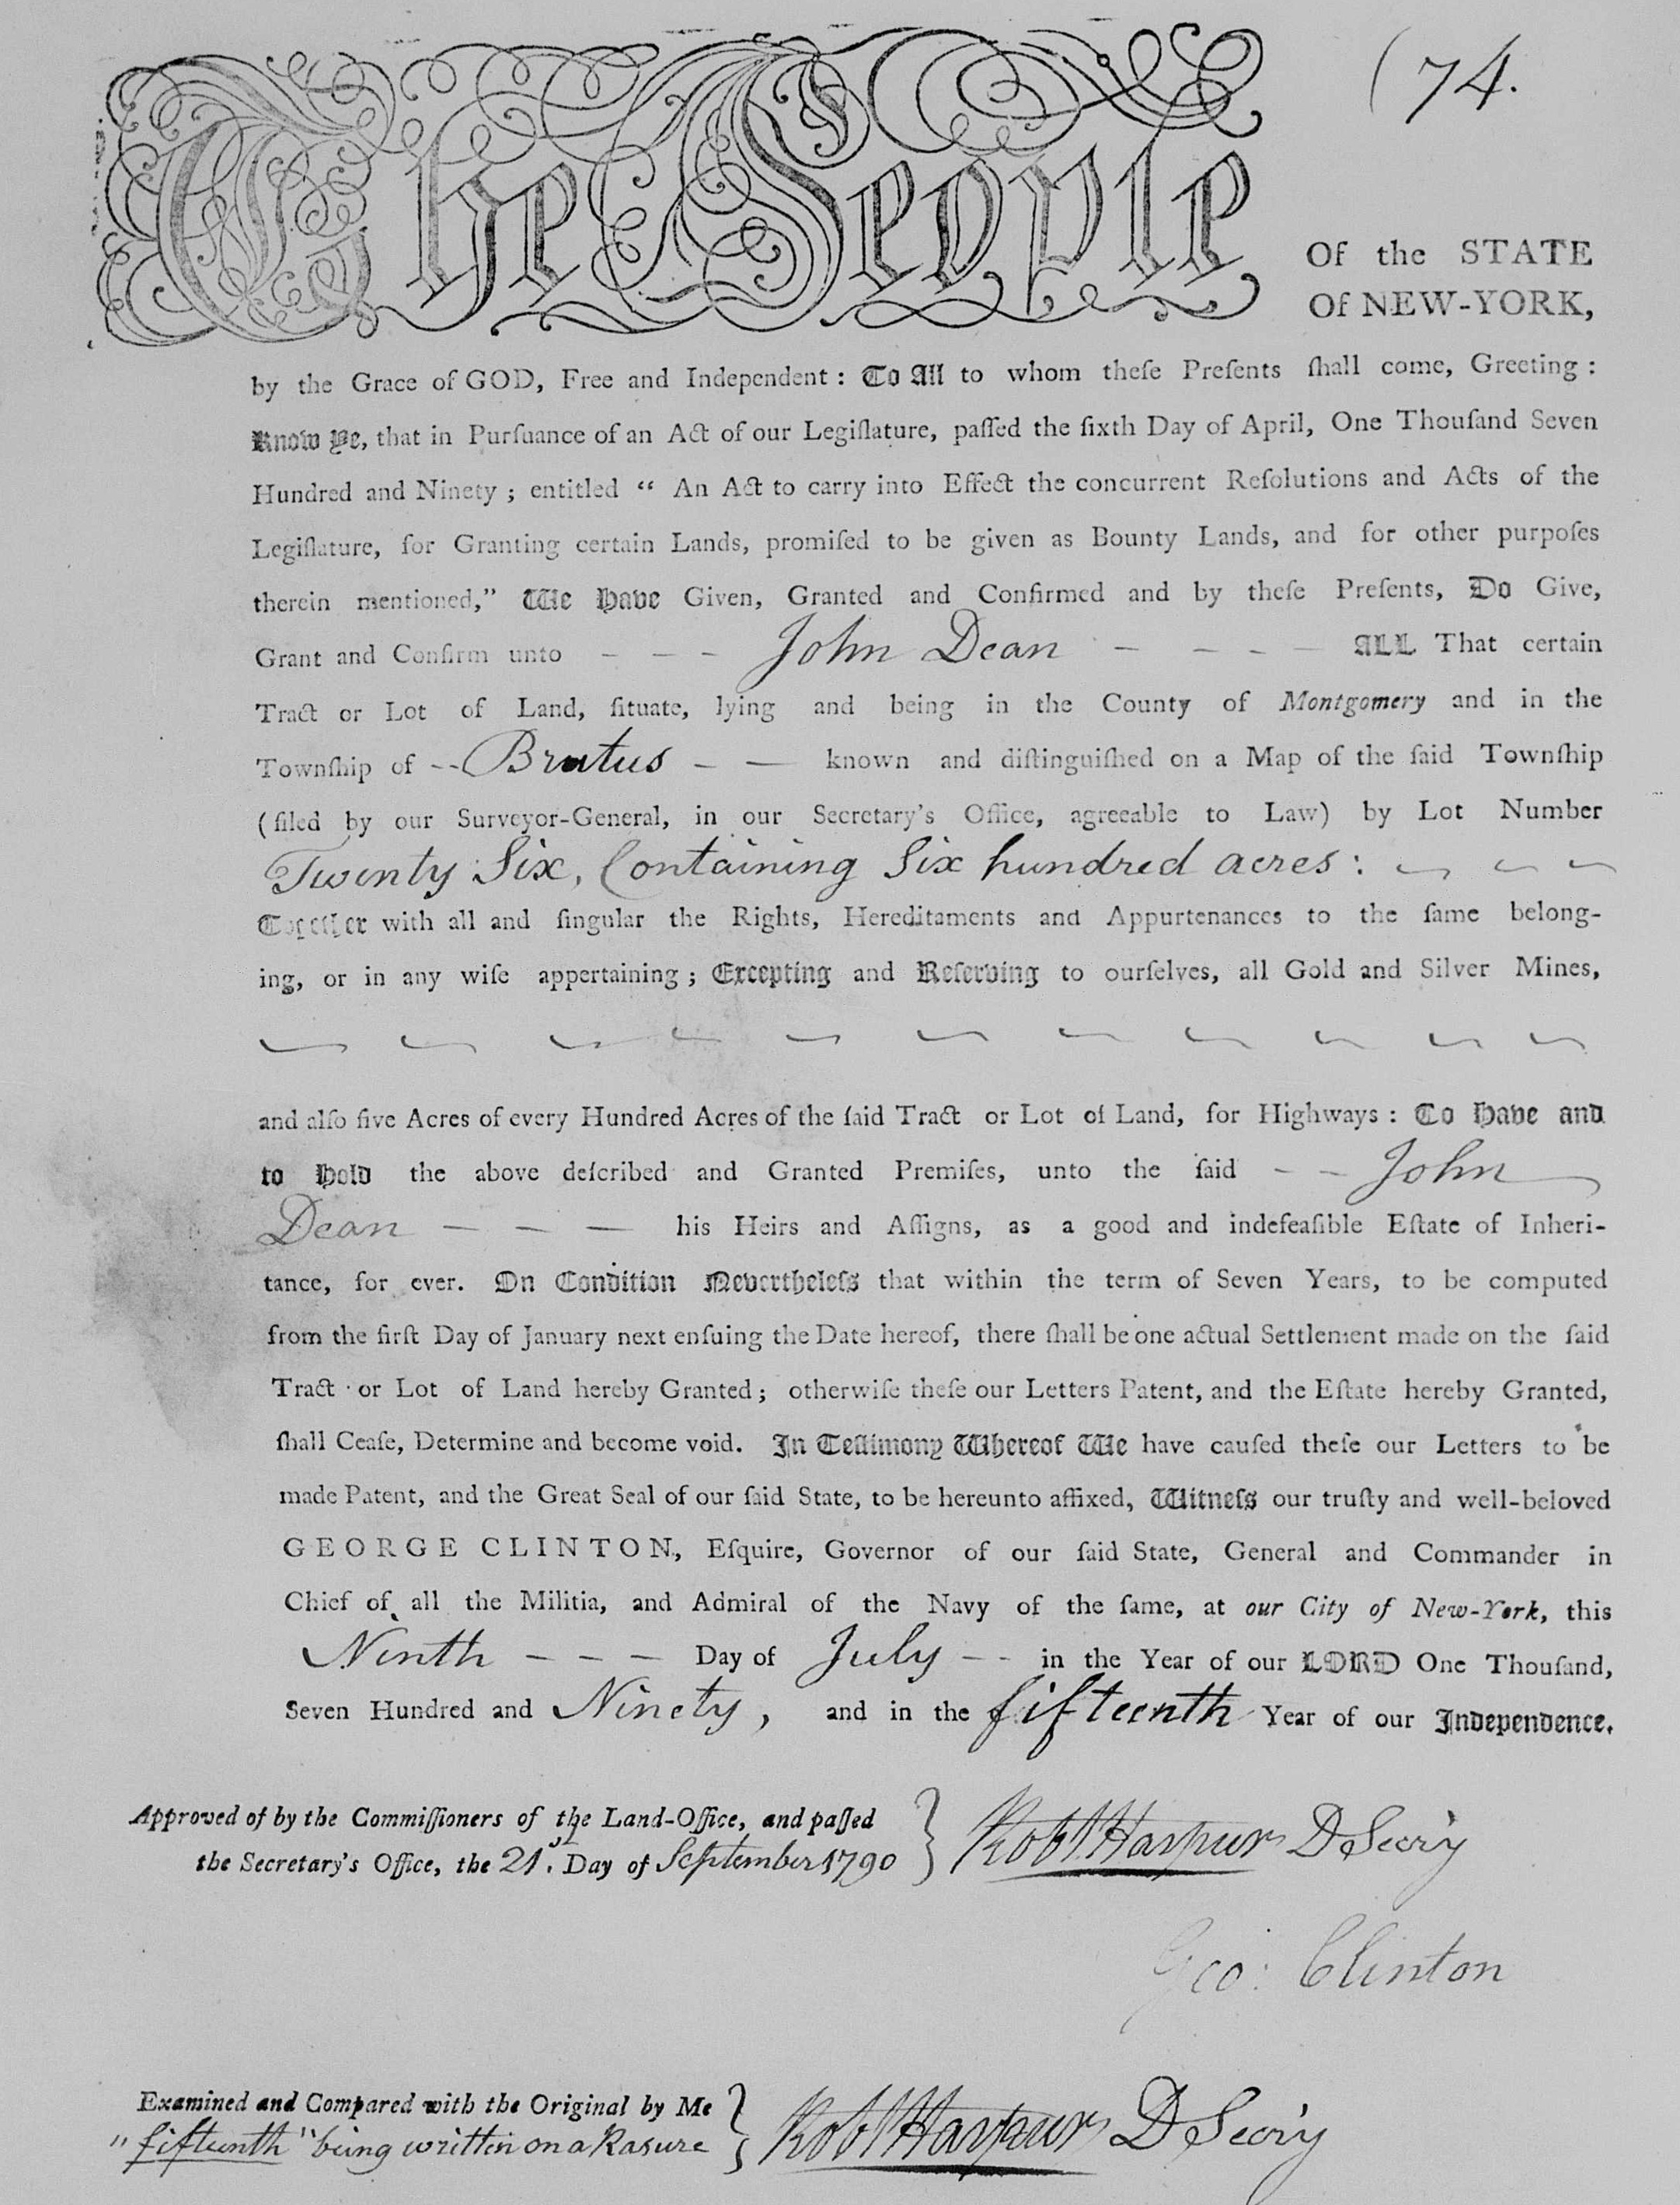 (74.
The People
Of the STATE
Of NEW-YORK,
by the Grace of GOD, Free and Independent: To All to whom theſe Preſents ſhall come, Greeting:
Know Ye, that in Purſuance of an Act of our Legiſlature, paſſed the ſixth Day of April, One Thouſand Seven
Hundred and Ninety; entitled “ An Act to carry into Effect the concurrent Reſolutions and Acts of the
Legiſlature, for Granting certain Lands, promiſed to be given as Bounty Lands, and for other purpoſes
therein mentioned,” We Have Given, Granted and Confirmed and by theſe Preſents, Do Give,
Grant and Confirm unto - - - John Dean - - - - ALL That certain
Tract or Lot of Land, ſituate, lying and being in the County of Montgomery and in the
Townſhip of -- Brutus - — known and diſtinguiſhed on a Map of the ſaid Townſhip
(filed by our Surveyor-General, in our Secretary's Office, agreeable to Law) by Lot Number
Twenty Six, Containing Six hundred acres: ~ ~ ~
Together with all and ſingular the Rights, Hereditaments and Appurtenances to the ſame belong-
ing, or in any wiſe appertaining; Excepting and Reſerving to ourſelves, all Gold and Silver Mines,
~ ~ ~ ~ ~ ~ ~ ~ ~ ~ ~
and alſo five Acres of every Hundred Acres of the ſaid Tract or Lot of Land, for Highways: To Have and
to Hold the above deſcribed and Granted Premiſes, unto the ſaid - — John
Dean — — — his Heirs and Aſſigns, as a good and indefeaſible Eſtate of Inheri-
tance, for ever. On Condition Nevertheleſs that within the term of Seven Years, to be computed
from the firſt Day of January next enſuing the Date hereof, there ſhall be one actual Settlement made on the ſaid
Tract or Lot of Land hereby Granted; otherwiſe theſe our Letters Patent, and the Eſtate hereby Granted,
ſhall Ceaſe, Determine and become void. In Teſtimony Whereof We have cauſed theſe our Letters to be
made Patent, and the Great Seal of our ſaid State, to be hereunto affixed, Witneſs our truſty and well-beloved
GEORGE CLINTON, Eſquire, Governor of our ſaid State, General and Commander in
Chief of all the Militia, and Admiral of the Navy of the ſame, at our City of New-York, this
Ninth - - - Day of July - - in the Year of our LORD One Thouſand,
Seven Hundred and Ninety, and in the fifteenth Year of our Independence.
Approved of by the Commiſſioners of the Land-Office, and paſſed
the Secretary's Office, the 21st. Day of September 1790 } Robt Harpur D Secry
Geo: Clinton
Examined and Compared with the Original by Me
"fifteenth" being written on a Rasure } Robt Harpur D Secry